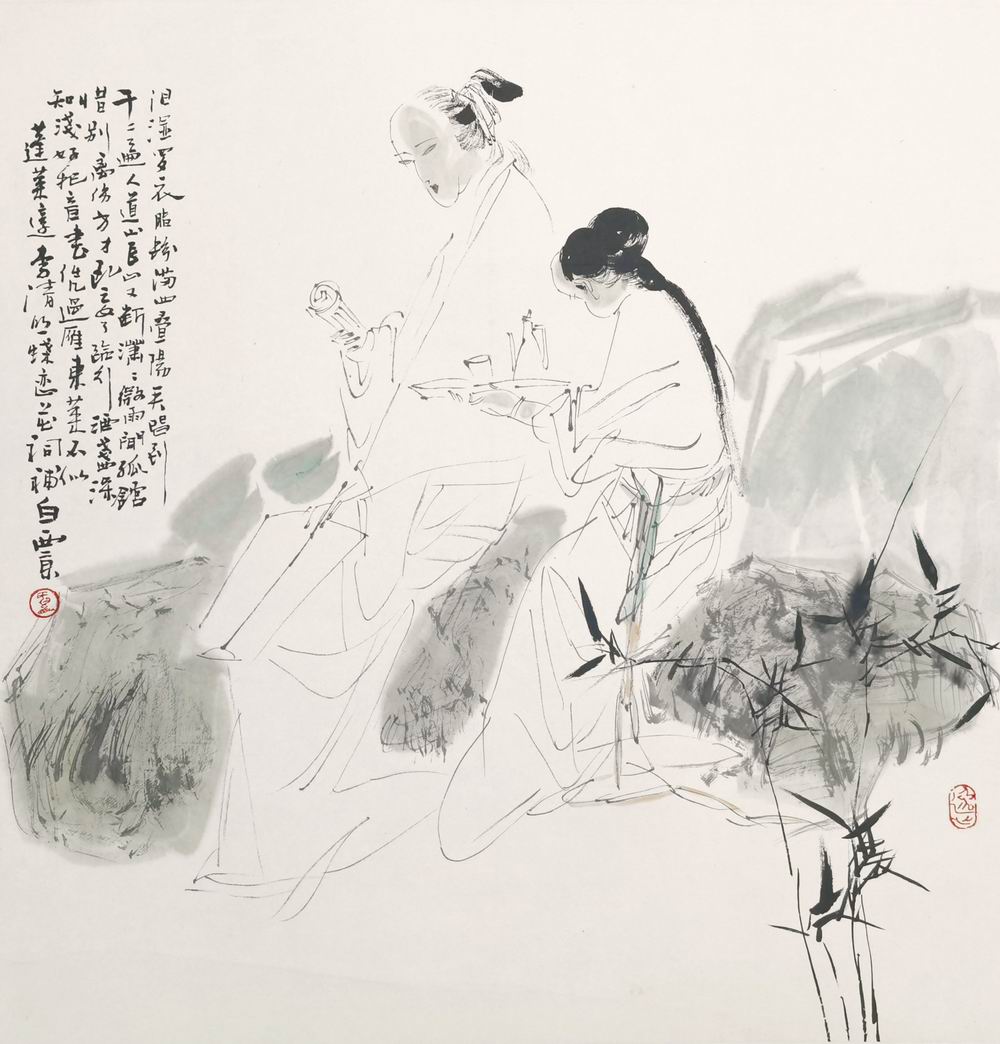 泪湿罗衣脂粉满四叠阳关唱到
千〻遍人道山長山又断潇〻微雨聞孤館
惜别离伤方寸乱忘了临行酒盏深
和浅好把音書凭過雁東莱不似
蓬莱遠李清照蝶恋花词補白西京